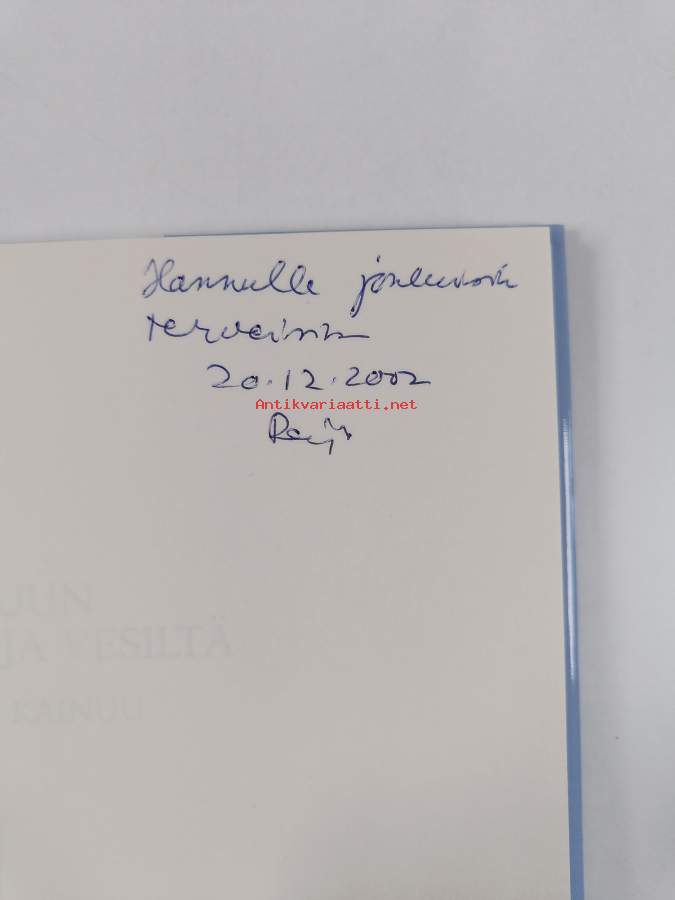 Hannulle jouluisin
terveisin
20.12.2002
Antikvariaatti.net
JUN
JA VESILTÄ
KAINUU